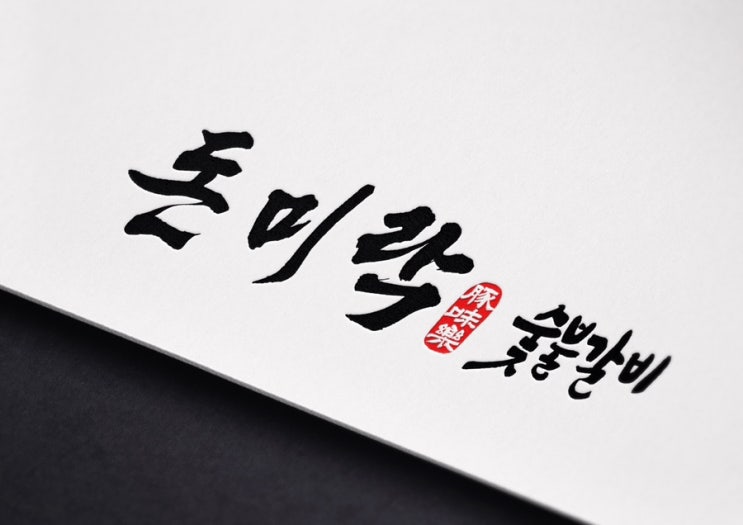 돈미락
豚味樂
숯불갈비